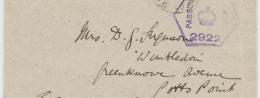 PASSED
2922
Mrs. D. G. Ferguson
"Wimbledon"
Greenknowe Avenue
Potts Point